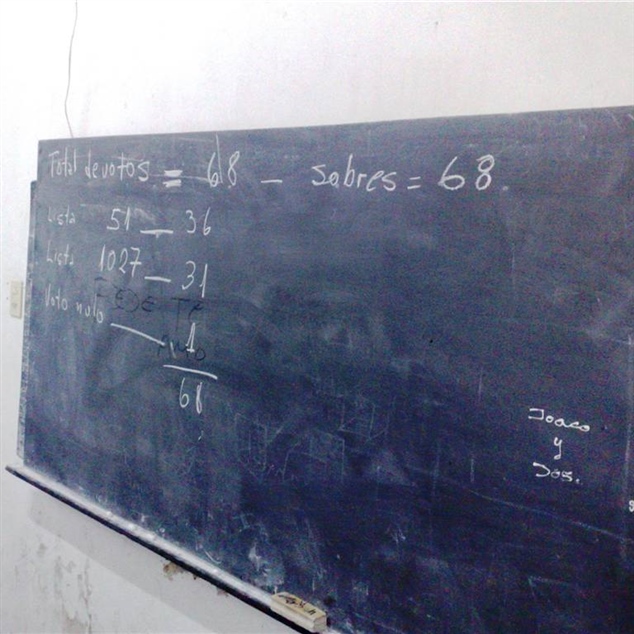 Total de votos = 68 - sobres = 68
Lista 51 — 36
Lista 1027 — 31
Voto nulo — 1
68
Joaco
y
Jos.